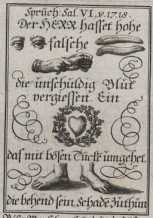 Sprüch: Sal. VI, v. 17. 18.
Der HERR hasset hohe
falsche
die unschüldig Blüt
vergiessen. Ein
das mit bösen Tück umgehet.
die behend sein, Schade zuthun